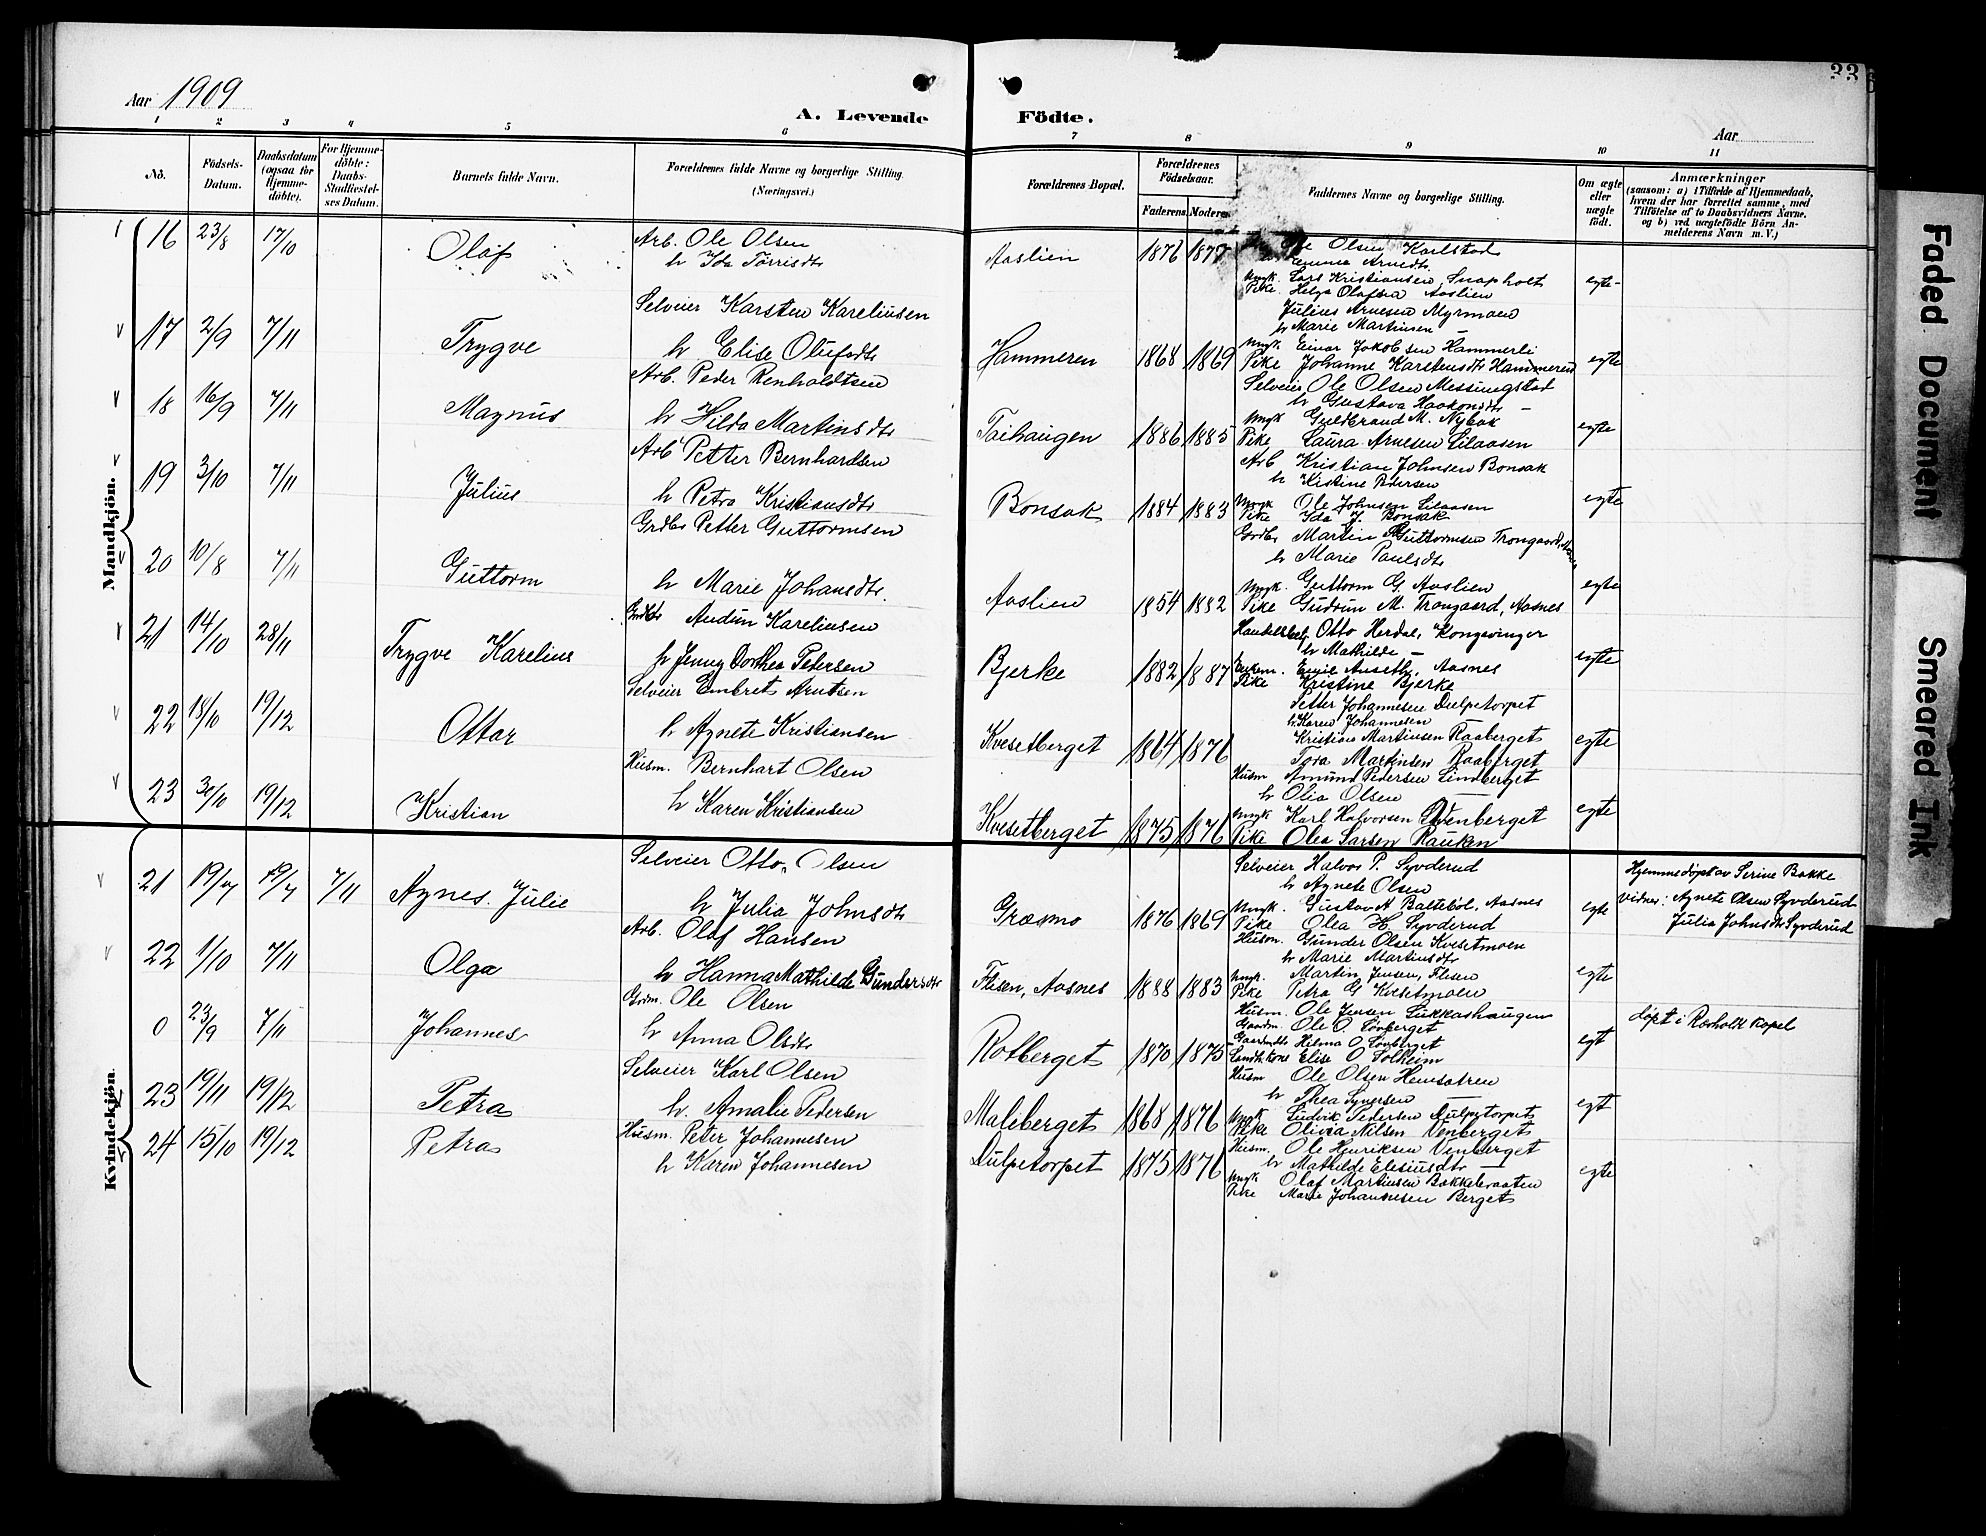 Aar 1909
A. Levende Födte.
33
Aar
1 2 3 4 5 6 7 8 9 10 11
No.
Födsels-Datum.
Daabsdatum (ogsaa for Hjemme-döbte).
For Hjemme-döbte: Daabs-Stadfæstel-ses Datum.
Barnets fulde Navn.
Forældrenes fulde Navne og borgerlige Stilling. (Næringsvei.)
Forældrenes Bopæl.
Forældrenes Födselsaar.
Faderens. Moderens.
Faddernes Navne og borgerlige Stilling.
Om ægte eller uægte född.
Anmærkninger
(saasom: a) i Tilfælde af Hjemmedaab, hvem der har forrettet samme, med Tilföielse af to Daabsvidners Navne, og b) ved uægtefödte Börn An-melderens Navn m. V.)
Mandkjön.
16 23/8 17/10 Olaf
Arb. Ole Olsen
h Ida Törrisdtr
Aaslien 1876 1877
Ole Olsen Karlstad
Emma Arnedtr
Ungk. Lars Kristiansen Snapholt
Pike. Helga Olafsen Aaslien
egte
17 2/9 7/11 Trygve
Selveier Karsten Kareliusen
h Elise Olufsdtr
Hammeren 1868 1869
Julius Arnesen Myrmoen
h Marie Martinsen
Ungk Einar Jakobsen Hammerli
Pike Johanne Karstensdtr Hammeren
egte
18 16/9 7/11 Magnus
Arb. Peder Renholdtsen
h Hilda Martinsdtr
Taihaugen 1886 1885
Selveier Ole Olsen Messingstad
h Gustava Haakonsdtr
Ungk Guldbrand M. Nybak
Pike Laura Arnesen Lilaasen
egte
19 3/10 7/11 Julius
Arb Petter Bernhardsen
h Petra Kristiansdtr
Bonsak 1884 1883
Arb Kristian Johnsen Bonsak
h Kristine Pedersen
Ungk Ole Johnsen Lilaasen
Pike Ida J. Bonsak
egte
20 10/8 7/11 Guttorm
Grdbr Petter Guttormsen
h Marie Johansdtr.
Aaslien 1854 1882
Grdbr Martin Guttormsen Trongaard,
h Marie Paulsdtr
Ungk. Guttorm G. Aaslien
Pike Gudrun M. Trongaard, Aasnes
egte
21 14/10 28/11 Trygve Karelius
Grdbr Audun Kareliusen
h Jenny Dorthea Pedersen
Bjerke 1882 1887
Handelsbetj. Otto Herdal, Kongsvinger
h Mathilde —
Enkem. Emil Anseth, Aasnes
Pike Kristine Bjerke
egte
22 18/10 19/12 Ottar
Selveier Embret Arntsen
h Agnete Kristiansen
Kvesetberget 1864 1876
Petter Johannesen Dulpetorpet
h Karen Johannesen
Kristian Martinsen Raaberget
Tora Martinsen Raaberget
egte
23 30/10 19/12 Kristian
Husm. Bernhart Olsen
h Karen Kristiansen
Kvesetberget 1875 1876
Husm Amund Pedersen Lindberget
h Olia Olsen —
Ungk Karl Halvorsen Venberget
Pike Olea Larsen Rauken
egte
Kvindekjön.
21 19/7 19/7 7/11 Agnes. Julie
Selveier Otto Olsen
h Julia Johnsdtr
Græsmo 1876 1869
Selveier Halvor P. Syvderud
h Agnete Olsen
Ungk. Gustav A Baltebøl, Aasnes
Pike Olea H. Syvderud
egte
Hjemmedøpt av Serine Bakke
vidner: Agnete Olsen Syvderud
Julia Johnsdtr Syvderud
22 1/10 7/11 Olga
Arb. Olaf Hansen
h Hanna Mathilde Gundersdtr
Flisen, Aasnes 1888 1883
Husm. Gunder Olsen Kvesetmoen
h Marie Martinsdtr
Ungk. Martin Jensen, Flisen
Pike Petra G Kvesetmoen
egte
0 23/9 7/11 Johannes
Grdm. Ole Olsen
h Anna Olsdtr
Rotberget 1870 1875
Husm. Ole Jensen Lukkashaugen
Gaardm. Ole O. Lövberget
Gaardmdtr Helma O Lövberget
Landh.kone Elise O Solheim
egt
døpt i Roxholdt kapel
23 19/11 19/12 Petra
Selveier Karl Olsen
h. Amalie Pedersen
Maleberget 1868 1876
Husm Ole Olsen Hemsætren
h Thea Syversen —
Ungk Ludvik Pedersen Dulpetorpet
Pike Olivia Nilsen Venberget
egt
24 15/10 19/12 Petra
Husm. Peter Johannesen
h Karen Johannesen
Dulpetorpet 1875 1876
Husm. Ole Henriksen Venberget
h Mathilde Elesiusdtr —
Ungk Olaf Martinsen Bakkebraaten
Pike Marie Johannesen Berget
egte
Faded Document
Smeared Ink